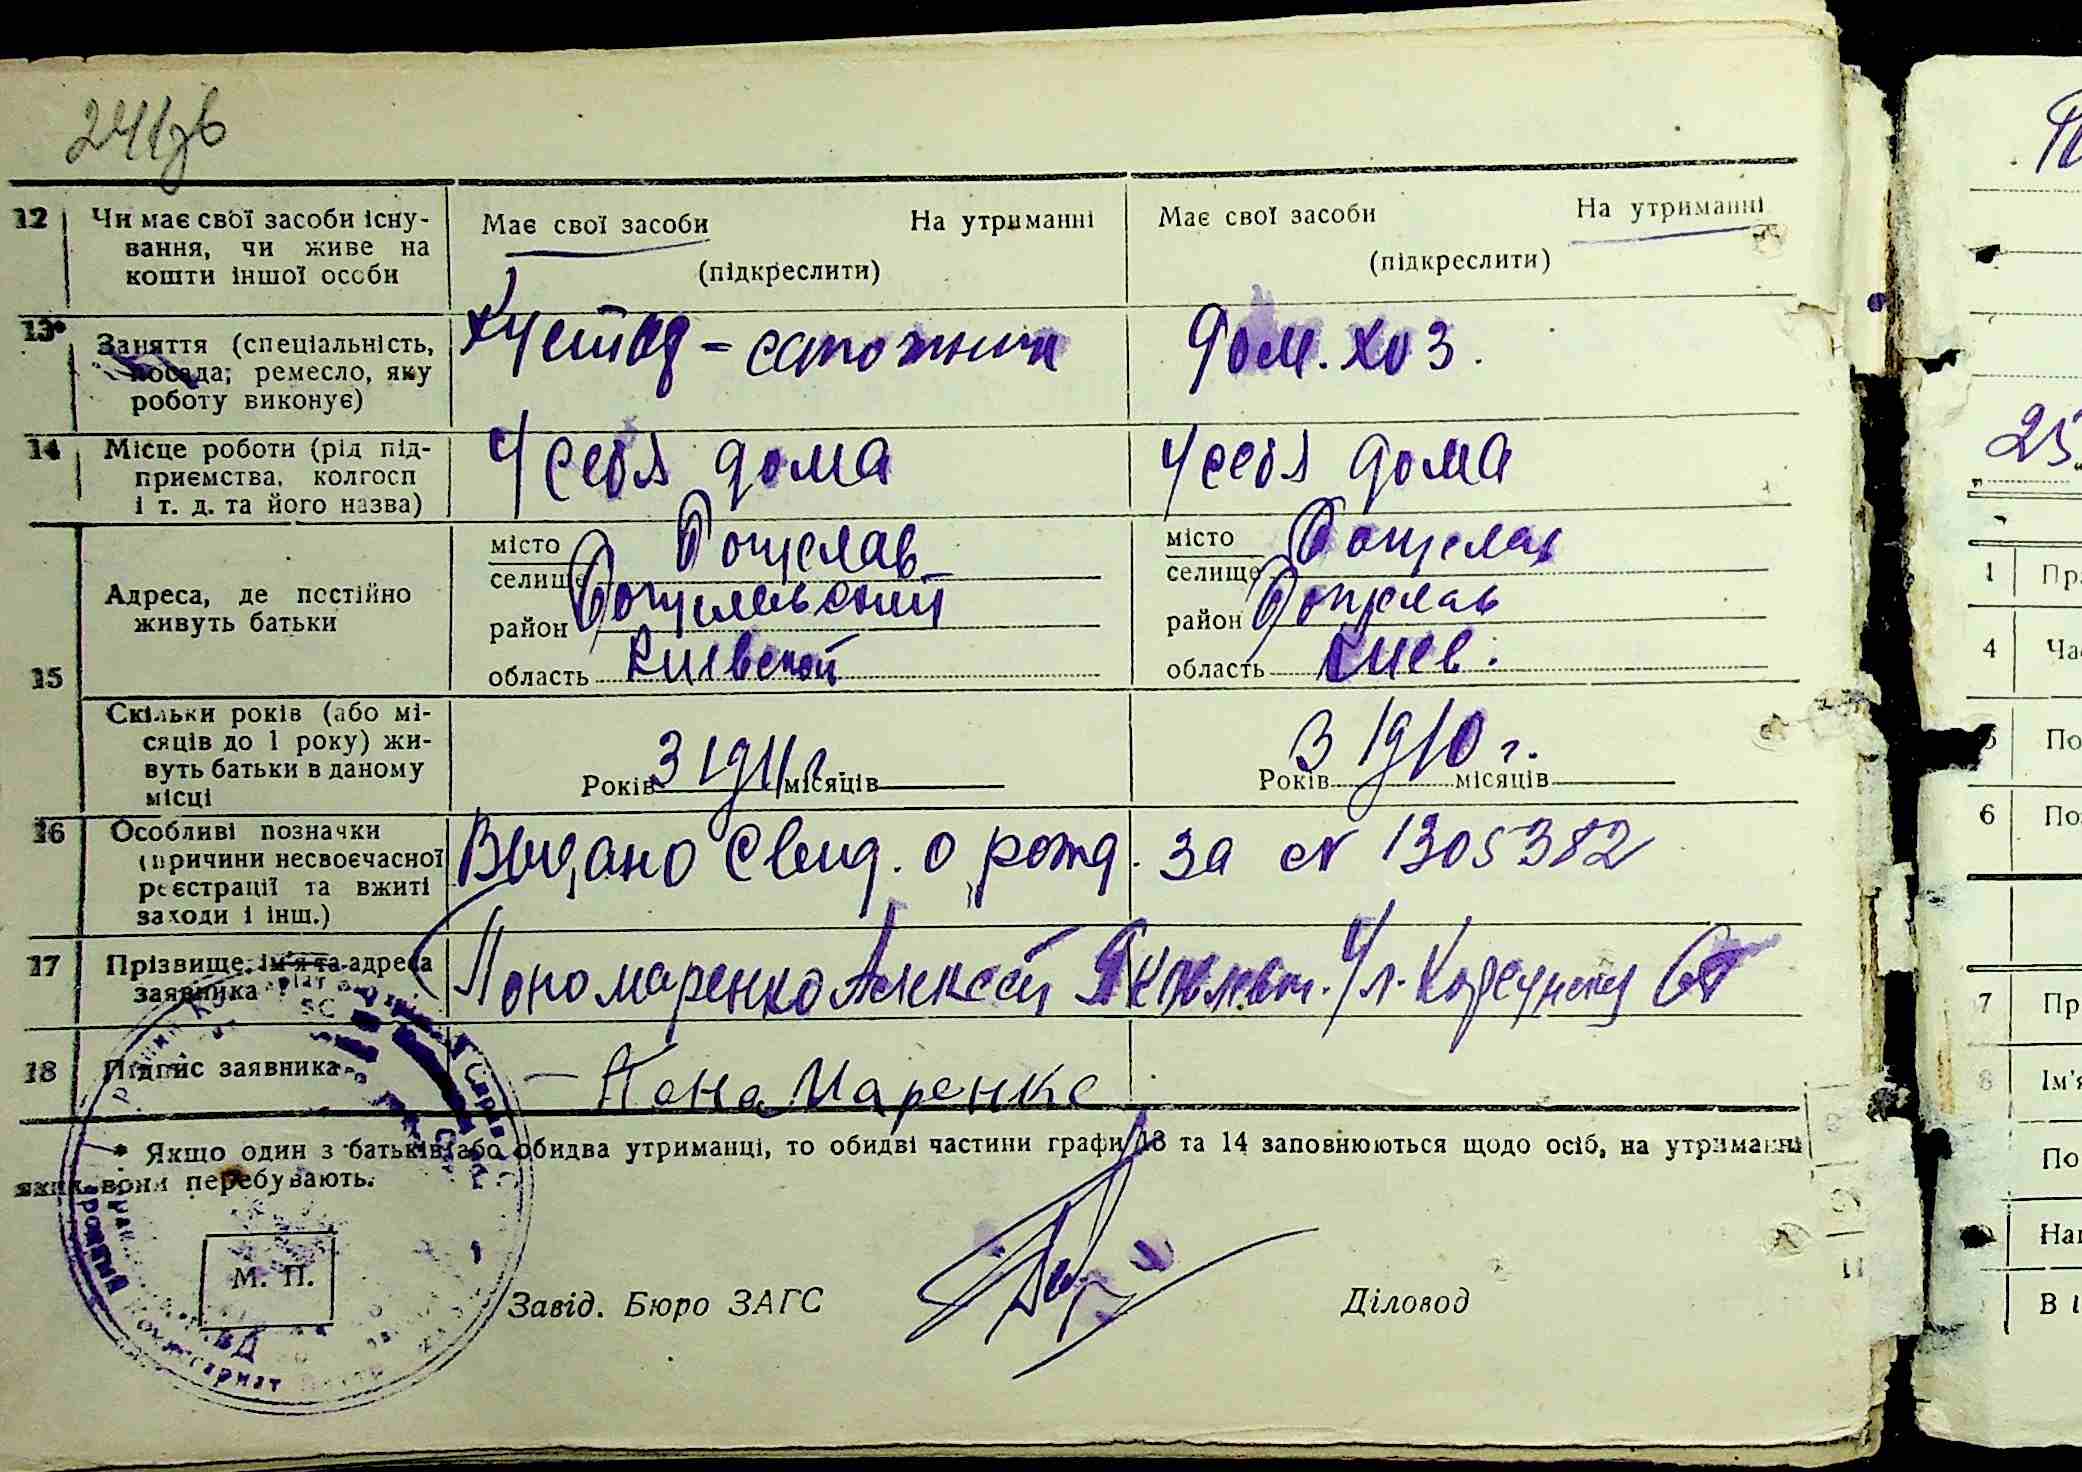 241зв
12 Чи має свої засоби існу-
вання, чи живе на
кошти іншої особи
Має свої засоби На утриманні
(підкреслити)
Має свої засоби На утриманні
(підкреслити)
13* Заняття (спеціальність,
посада; ремесло, яку
роботу виконує)
Кустар - сапожник
Дом. хоз.
14 Місце роботи (рід під-
приємства, колгосп
і т. д. та його назва)
У себя дома
У себя дома
15
Адреса, де постійно
живуть батьки
місто Богуслав
селище
район Богуславский
область Киевской
місто Богуслав
селище
район Богуслав
область Киев.
Скільки років (або мі-
сяців до 1 року) жи-
вуть батьки в даному
місці
Років З 1911 г. місяців
Років З 1910 г. місяців
16 Особливі позначки
(причини несвоєчасної
реєстрації та вжиті
заходи і інш.)
Выдано свид. о рожд. за № 1305382
17 Прізвище, ім'я та адреса
заявника
Пономаренко Алексей Яковлевич. Ул.
18 Підпис заявника
Пона Маренко
* Якщо один з батьків або обидва утриманці, то обидві частини графи 13 та 14 заповнюються щодо осіб, на утриманні
яких вони перебувають.
М. П.
Завід. Бюро ЗАГС
Діловод
Комисариат
25
1 Пр
4 Ча
5 По
6 По
7 Пр
8 Ім'я
По
На
В